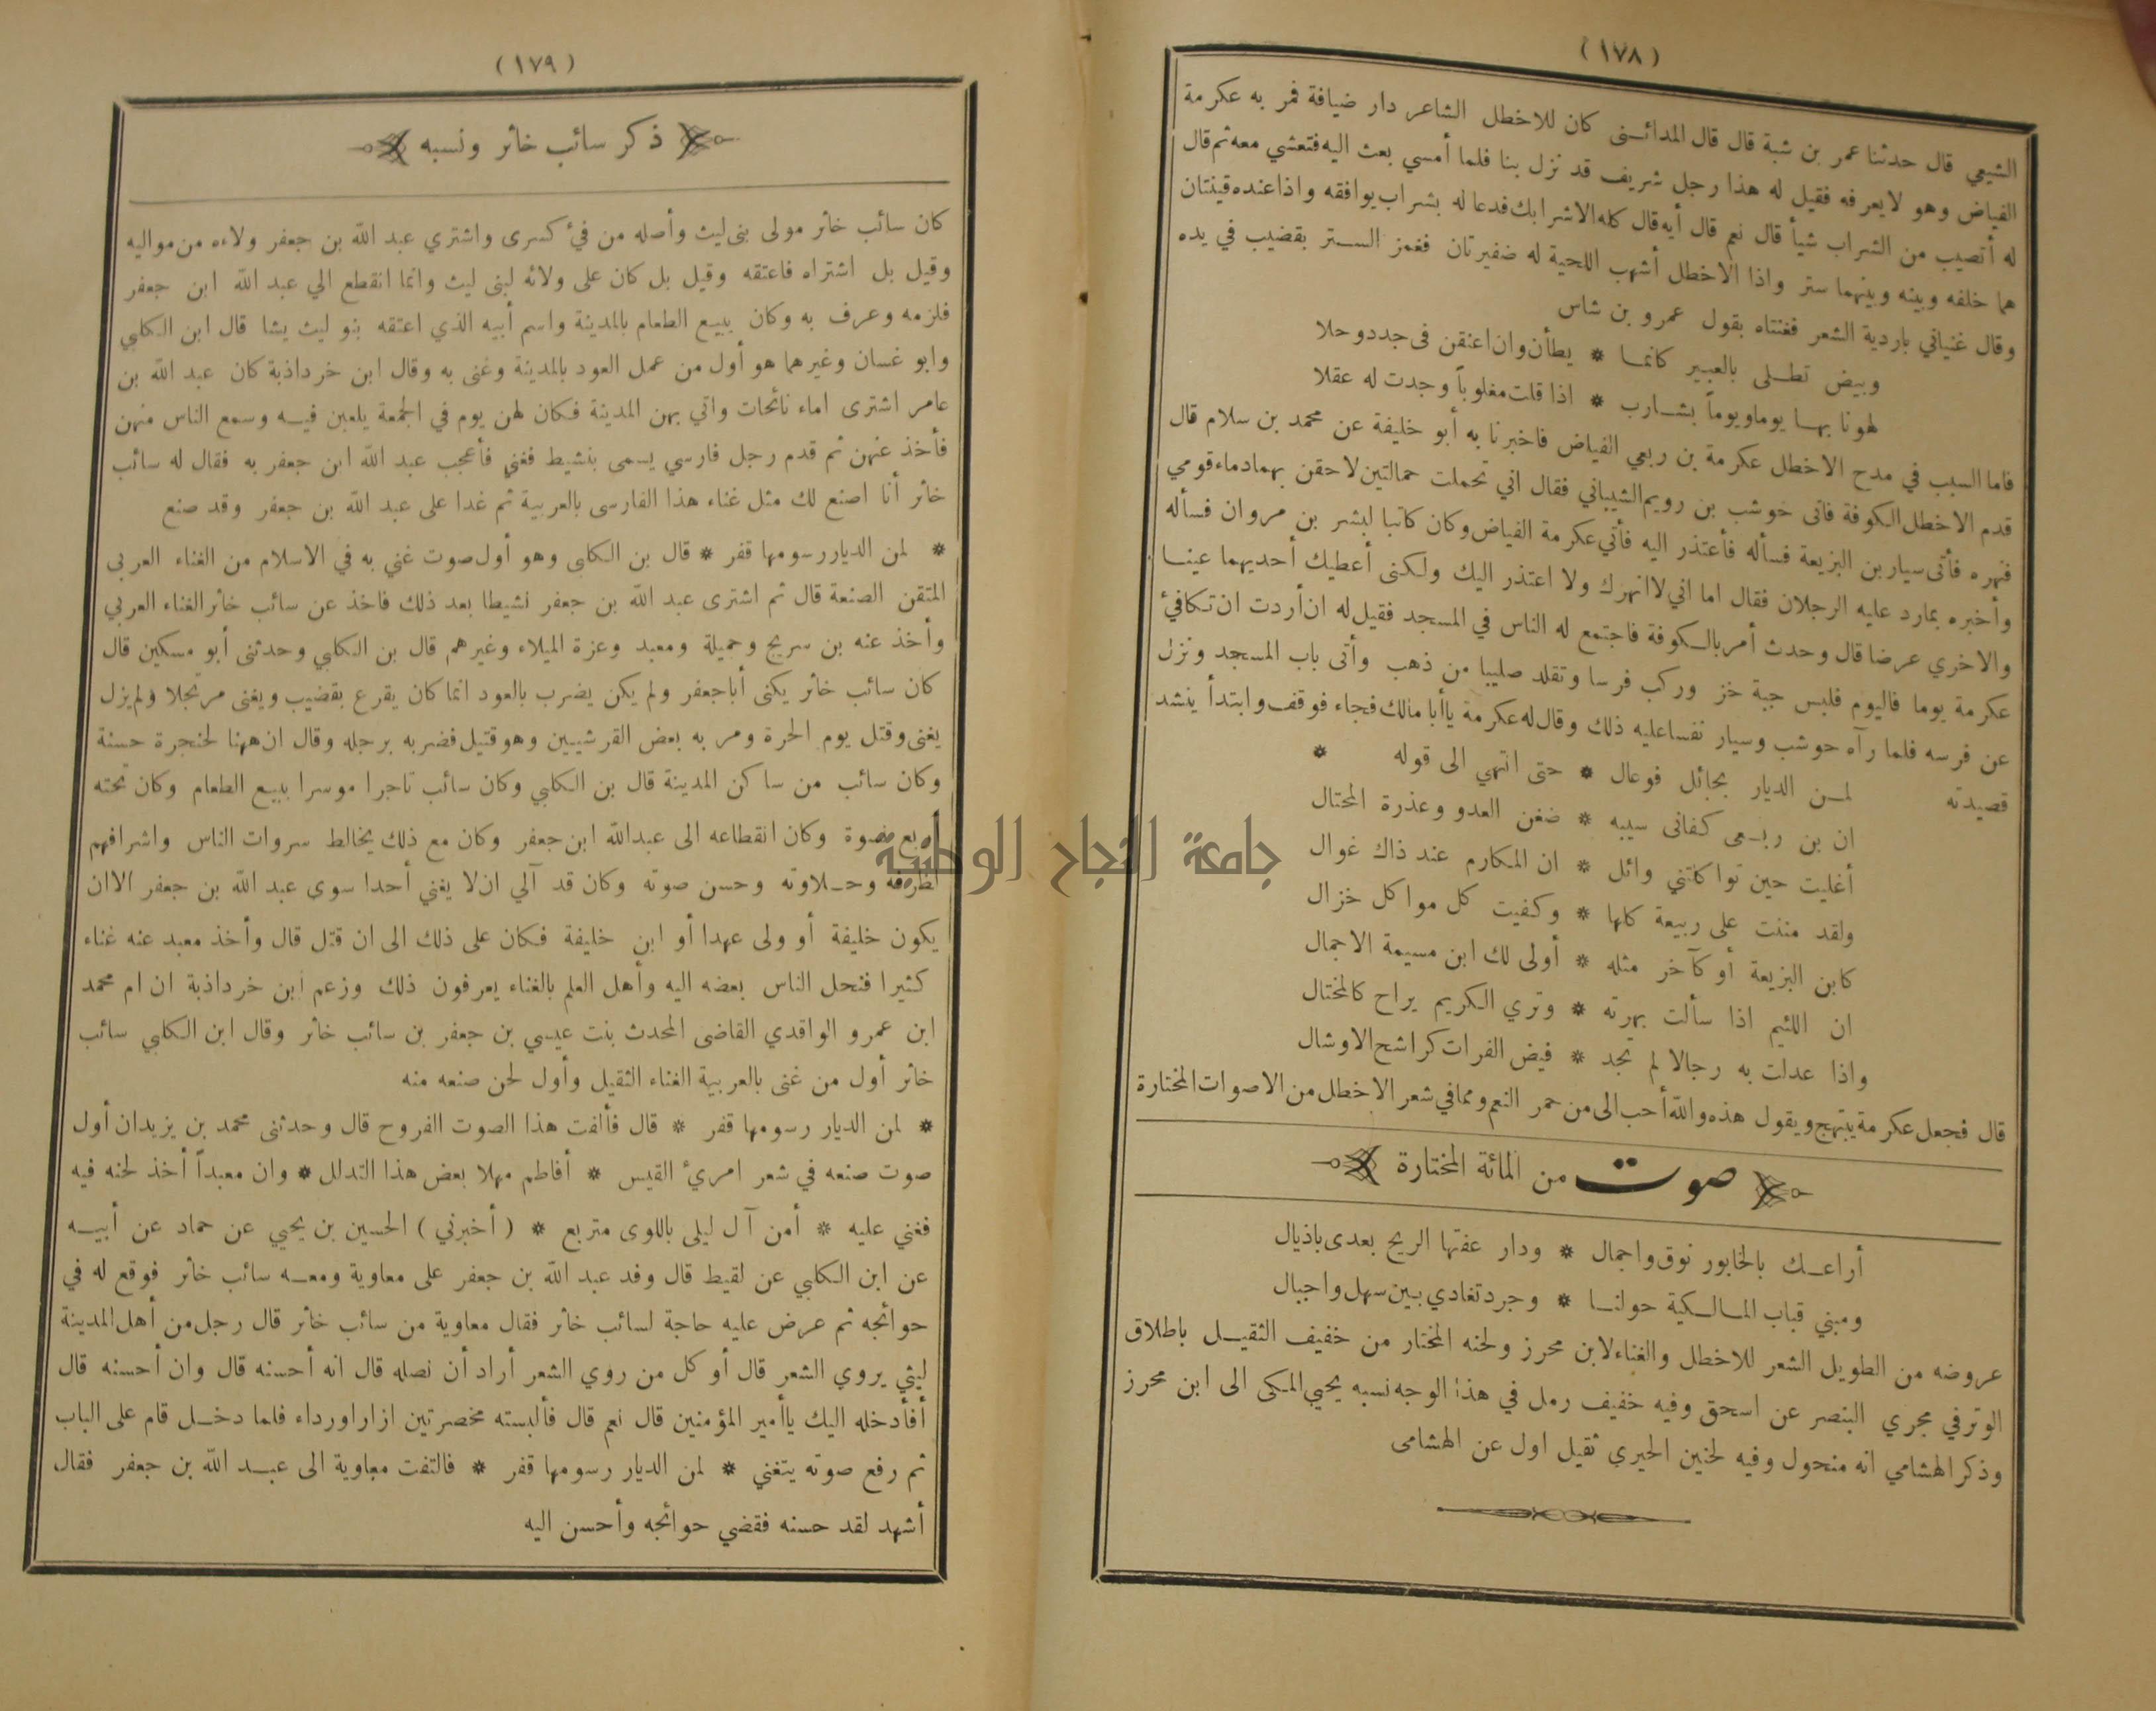 (١٧٨)
الشيعي قال حدثنا عمر بن شبة قال قال المدائنى كان للاخطل الشاعر دار ضيافة فمر به عكرمة
الفياض وهو لايعرفه فقيل له هذا رجل شريف قد نزل بنا فلما أمسي بعث اليه فتعشي معه ثم قال
له أتصيب من الشراب شيأ قال نعم قال أيه قال كله الاشرابك فدعا له بشراب يوافقه واذا عنده قينتان
هما خلفه وبينه وبينهما ستر واذا الاخطل أشهب اللحية له ضفيرتان فغمز الستر بقضيب في يده
وقال غنياني باردية الشعر فغنتاه بقول عمرو بن شاس
وبيض تطلى بالعبير كانما * يطأن وان اعنقن فى جدد وحلا
لهونا بها يوما ويوماً بشارب * اذا قلت مغلوباً وجدت له عقلا
فاما السبب في مدح الاخطل عكرمة بن ربعي الفياض فاخبرنا به أبو خليفة عن محمد بن سلام قال
قدم الاخطل الكوفة فاتى حوشب بن رويم الشيباني فقال اني تحملت حمالتين لاحقن بهما دماء قومي
فنهره فأتى سيار بن البزيعة فسأله فأعتذر اليه فأتي عكرمة الفياض وكان كاتبا لبشر بن مروان فسأله
وأخبره بمارد عليه الرجلان فقال اما اني لا انهرك ولا اعتذر اليك ولكنى أعطيك أحديهما عينا
والاخري عرضا قال وحدث أمر بالكوفة فاجتمع له الناس في المسجد فقيل له ان أردت ان تكافئ
عكرمة يوما فاليوم فلبس جبة خز وركب فرسا وتقلد صليبا من ذهب وأتى باب المسجد ونزل
عن فرسه فلما رآه حوشب وسيار نفسا عليه ذلك وقال له عكرمة ياأبا مالك فجاء فوقف وابتدأ ينشد
قصيدته لمن الديار بحائل فوعال * حتى انتهي الى قوله *
ان بن ربعى كفانى سيبه * ضغن العدو وعذرة المحتال
أغليت حين تواكلتني وائل * ان المكارم عند ذاك غوال
ولقد مننت على ربيعة كلها * وكفيت كل مواكل خزال
كابن البزيعة أو كآخر مثله * أولى لك ابن مسيمة الاجمال
ان اللئيم اذا سألت بهرته * وتري الكريم يراح كالمختال
واذا عدلت به رجالا لم تجد * فيض الفرات كراشح الاوشال
قال فجعل عكرمة يبتهج ويقول هذه والله أحب الى من حمر النعم ومما في شعر الاخطل من الاصوات المختارة
صوت من المائة المختارة
أراعك بالخابور نوق واجمال * ودار عفتها الريح بعدى باذيال
ومبني قباب المالكية حولنا * وجرد تغادي بين سهل واجبال
عروضه من الطويل الشعر للاخطل والغناء لابن محرز ولحنه المختار من خفيف الثقيل باطلاق
الوتر في مجري البنصر عن اسحق وفيه خفيف رمل في هذا الوجه نسبه يحيي المكى الى ابن محرز
وذكر الهشامي انه منحول وفيه لحنين الحيري ثقيل اول عن الهشامى
(١٧٩)
ذكر سائب خاثر ونسبه
كان سائب خاثر مولى بنى ليث وأصله من فئ كسرى واشتري عبد الله بن جعفر ولاءه من مواليه
وقيل بل اشتراه فاعتقه وقيل بل كان على ولائه لبنى ليث وانما انقطع الي عبد الله ابن جعفر
فلزمه وعرف به وكان يبيع الطعام بالمدينة واسم أبيه الذي اعتقه بنو ليث يشا قال ابن الكلبي
وابو غسان وغيرهما هو أول من عمل العود بالمدينة وغنى به وقال ابن خرداذبة كان عبد الله بن
عامر اشترى اماء نائحات واتي بهن المدينة فكان لهن يوم في الجمعة يلعبن فيه وسمع الناس منهن
فأخذ عنهن ثم قدم رجل فارسي يسمى بنشيط فغني فأعجب عبد الله ابن جعفر به فقال له سائب
خاثر أنا اصنع لك مثل غناء هذا الفارسى بالعربية ثم غدا على عبد الله بن جعفر وقد صنع
* لمن الديار رسومها قفر * قال بن الكلبى وهو أول صوت غني به في الاسلام من الغناء العربى
المتقن الصنعة قال ثم اشترى عبد الله بن جعفر نشيطا بعد ذلك فاخذ عن سائب خاثر الغناء العربي
وأخذ عنه بن سريج وجميلة ومعبد وعزة الميلاء وغيرهم قال بن الكلبي وحدثنى أبو مسكين قال
كان سائب خاثر يكنى أباجعفر ولم يكن يضرب بالعود انما كان يقرع بقضيب ويغنى مرتجلا ولم يزل
يغنى وقتل يوم الحرة ومر به بعض القرشيين وهو قتيل فضربه برجله وقال ان ههنا لحنجرة حسنة
وكان سائب من ساكن المدينة قال بن الكلبي وكان سائب تاجرا موسرا يبيع الطعام وكان تحته
أربع نسوة وكان انقطاعه الى عبدالله ابن جعفر وكان مع ذلك يخالط سروات الناس واشرافهم
لظرفه وحلاوته وحسن صوته وكان قد آلي ان لا يغني أحدا سوى عبد الله بن جعفر الا ان
يكون خليفة أو ولى عهدا أو ابن خليفة فكان على ذلك الى ان قتل قال وأخذ معبد عنه غناء
كثيرا فنحل الناس بعضه اليه وأهل العلم بالغناء يعرفون ذلك وزعم ابن خرداذبة ان ام محمد
ابن عمرو الواقدي القاضى المحدث بنت عيسي بن جعفر بن سائب خاثر وقال ابن الكلبي سائب
خاثر أول من غنى بالعربية الغناء الثقيل وأول لحن صنعه منه
* لمن الديار رسومها قفر * قال فألفت هذا الصوت الفروح قال وحدثنى محمد بن يزيدان أول
صوت صنعه في شعر امرئ القيس * أفاطم مهلا بعض هذا التدلل * وان معبداً أخذ لحنه فيه
فغني عليه * أمن آل ليلى باللوى متربع * (أخبرني) الحسين بن يحيي عن حماد عن أبيه
عن ابن الكلبي عن لقيط قال وفد عبد الله بن جعفر على معاوية ومعه سائب خاثر فوقع له في
حوائجه ثم عرض عليه حاجة لسائب خاثر فقال معاوية من سائب خاثر قال رجل من أهل المدينة
ليثي يروي الشعر قال أو كل من روي الشعر أراد أن نصله قال انه أحسنه قال وان أحسنه قال
أفأدخله اليك ياأمير المؤمنين قال نعم قال فألبسته مخصرتين ازارا ورداء فلما دخل قام على الباب
ثم رفع صوته يتغني * لمن الديار رسومها قفر * فالتفت معاوية الى عبد الله بن جعفر فقال
أشهد لقد حسنه فقضي حوائجه وأحسن اليه
جامعة النجاح الوطنية